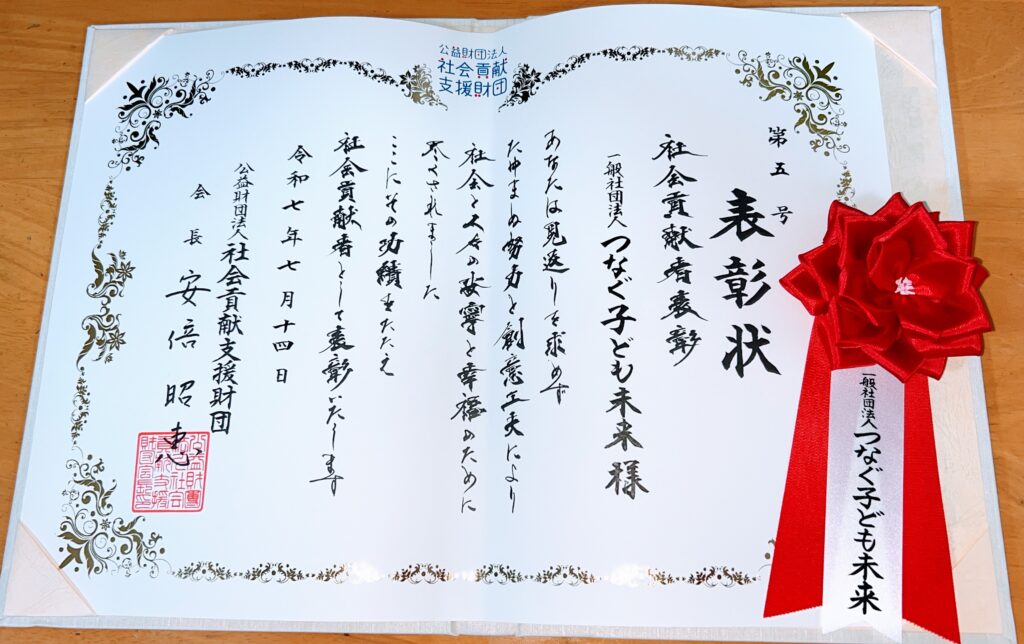 公益財団法人
社会貢献
支援財団
第五号
表彰状
社会貢献者表彰
一般社団法人 つなぐ子ども未来 様
あなたは見返りを求めず
たゆまぬ努力と創意工夫により
社会と人々の安寧と幸福のために
尽くされました
ここにその功績をたたえ
社会貢献者として表彰いたします
令和七年七月十四日
公益財団法人 社会貢献支援財団
会長 安倍昭恵
一般社団法人 つなぐ子ども未来